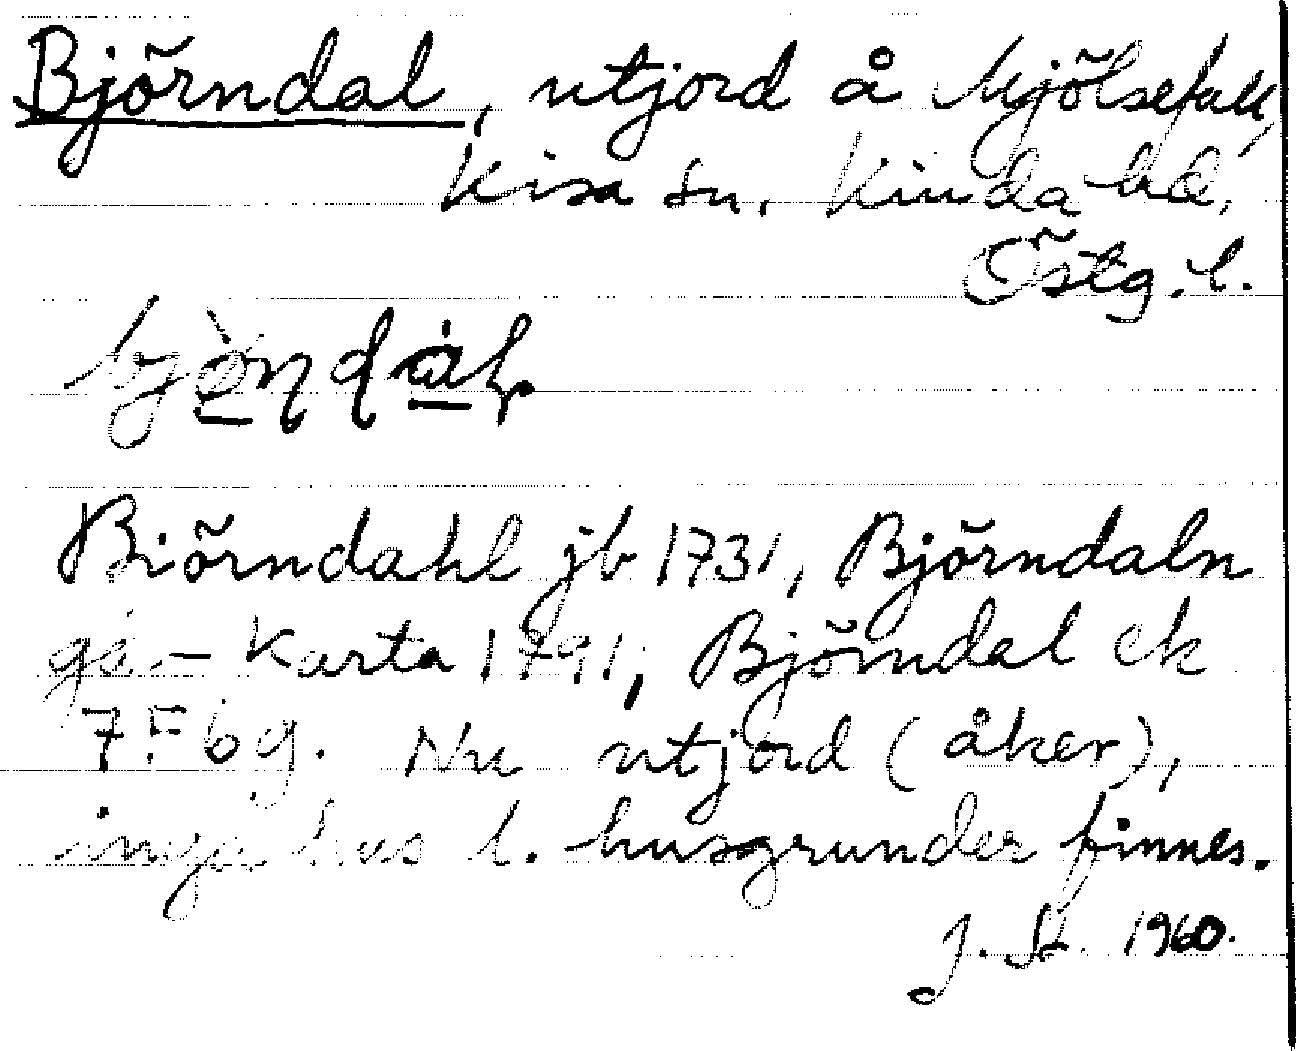 Björndal, utjord å Mjölsefall,
Kisa sn. Kinda hd,
Östg. l.
Biörndahl jb 1731, Björndaln
gs- Karta 1791, Björndal ek
7 F 6 g. Nu utjord (åker),
inga hus l. husgrunder finnes.
J. St. 1960.